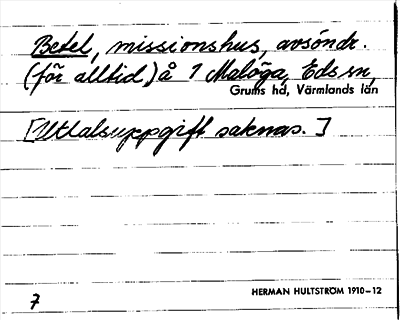 Betel, missionshus, avsöndr.
(för alltid) å 1 Malöga, Eds sn,
Grums hd, Värmlands län
[Uttalsuppgift saknas.]
HERMAN HULTSTRÖM 1910–12
7